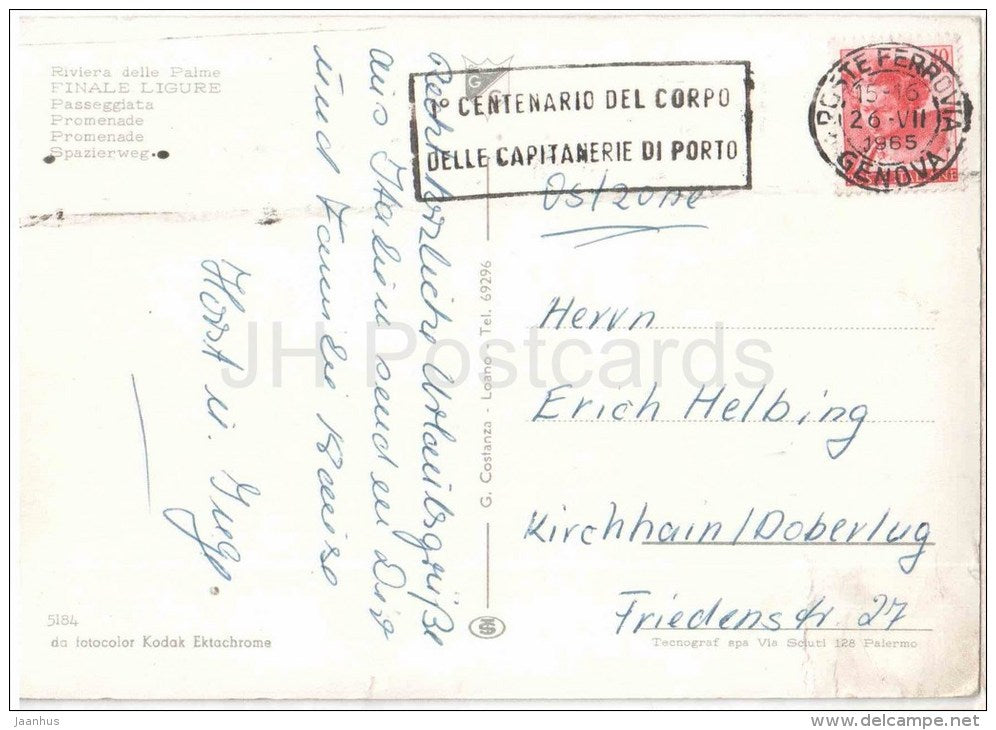 Riviera delle Palme
FINALE LIGURE
Passeggiata
Promenade
Promenade
Spazierweg
° CENTENARIO DEL CORPO
DELLE CAPITANERIE DI PORTO
POSTE FERROVIA
15-16
26-VII
1965
GENOVA
Ostzone
Herrn
Erich Helbing
Kirchhain/Doberlug
Friedenstr. 27
Recht herzliche Urlaubsgrüße
aus Italien senden Dir
und Familie
Horst u.
G. Costanza - Loano - Tel. 69296
5184
da fotocolor Kodak Ektachrome
Tecnograf spa Via Scuti 128 Palermo
JH Postcards
jaanhus
www.delcampe.net